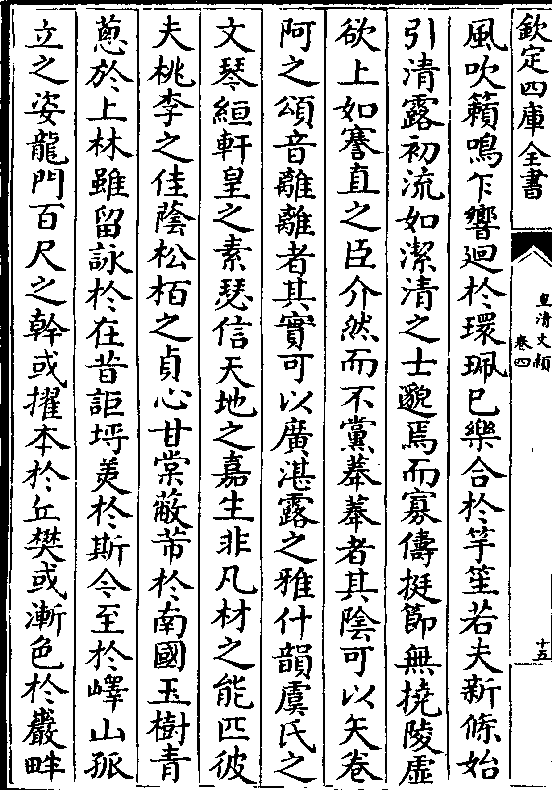 欽定四庫全書
皇清文頴
卷四
十五
風吹籟鳴乍響迴於環珮已樂合於竽笙若夫新條始
引清露初流如潔清之士邈焉而寡儔挺節無撓陵虛
欲上如謇直之臣介然而不黨菶菶者其陰可以矢卷
阿之頌音離離者其實可以廣湛露之雅什韻虞氏之
文琴絙軒皇之素瑟信天地之嘉生非凡材之能匹彼
夫桃李之佳蔭松栢之貞心甘棠蔽芾於南國玉樹青
蔥於上林雖留詠於在昔詎埓羙於斯今至於嶧山孤
立之姿龍門百尺之幹或擢本於丘樊或漸色於巖畔